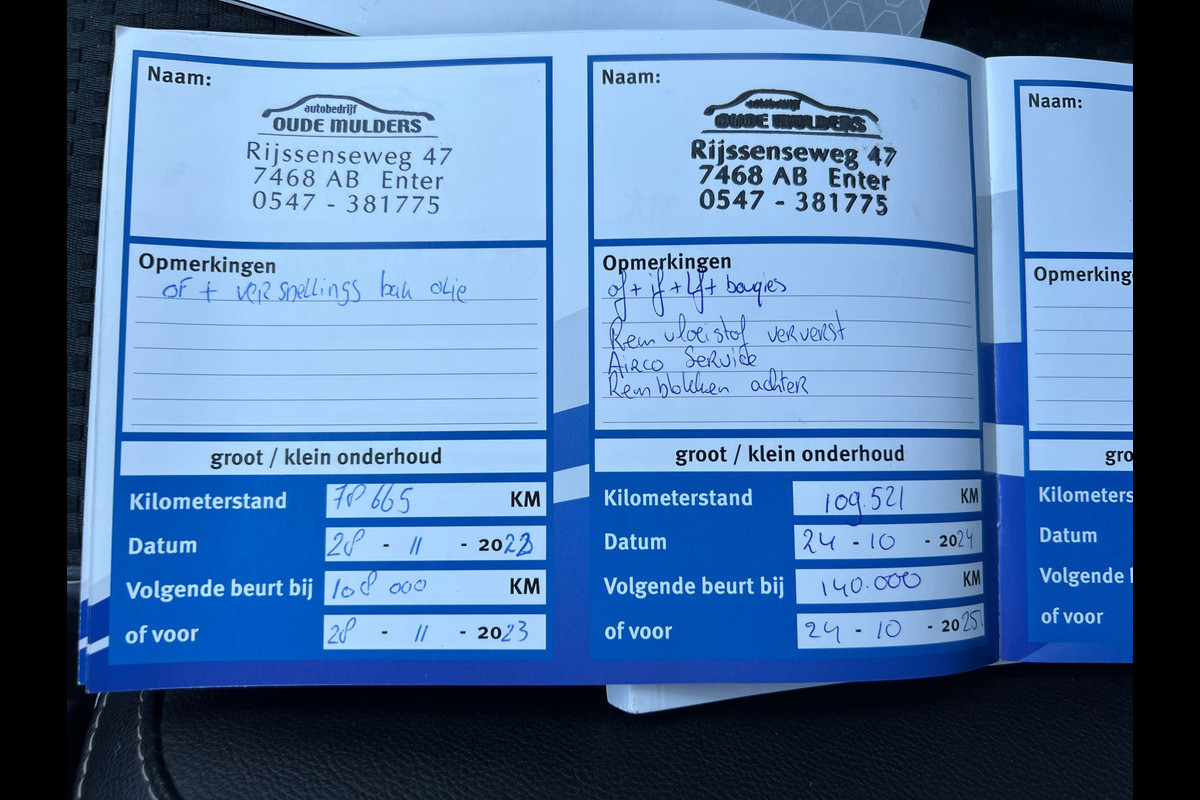 Naam:
autobedrijf
OUDE MULDERS
Rijssenseweg 47
7468 AB Enter
0547 - 381775
Opmerkingen
of + versnellings bak olie
groot / klein onderhoud
Kilometerstand 78 665 KM
Datum 28 - 11 - 2022
Volgende beurt bij 108 000 KM
of voor 28 - 11 - 2023
Naam:
autobedrijf
OUDE MULDERS
Rijssenseweg 47
7468 AB Enter
0547 - 381775
Opmerkingen
of + if + lf + bougies
Rem vloeistof ververst
Airco Service
Remblokken achter
groot / klein onderhoud
Kilometerstand 109.521 KM
Datum 24 - 10 - 2024
Volgende beurt bij 140.000 KM
of voor 24 - 10 - 2025
Naam:
Opmerking
gro
Kilometers
Datum
Volgende
of voor